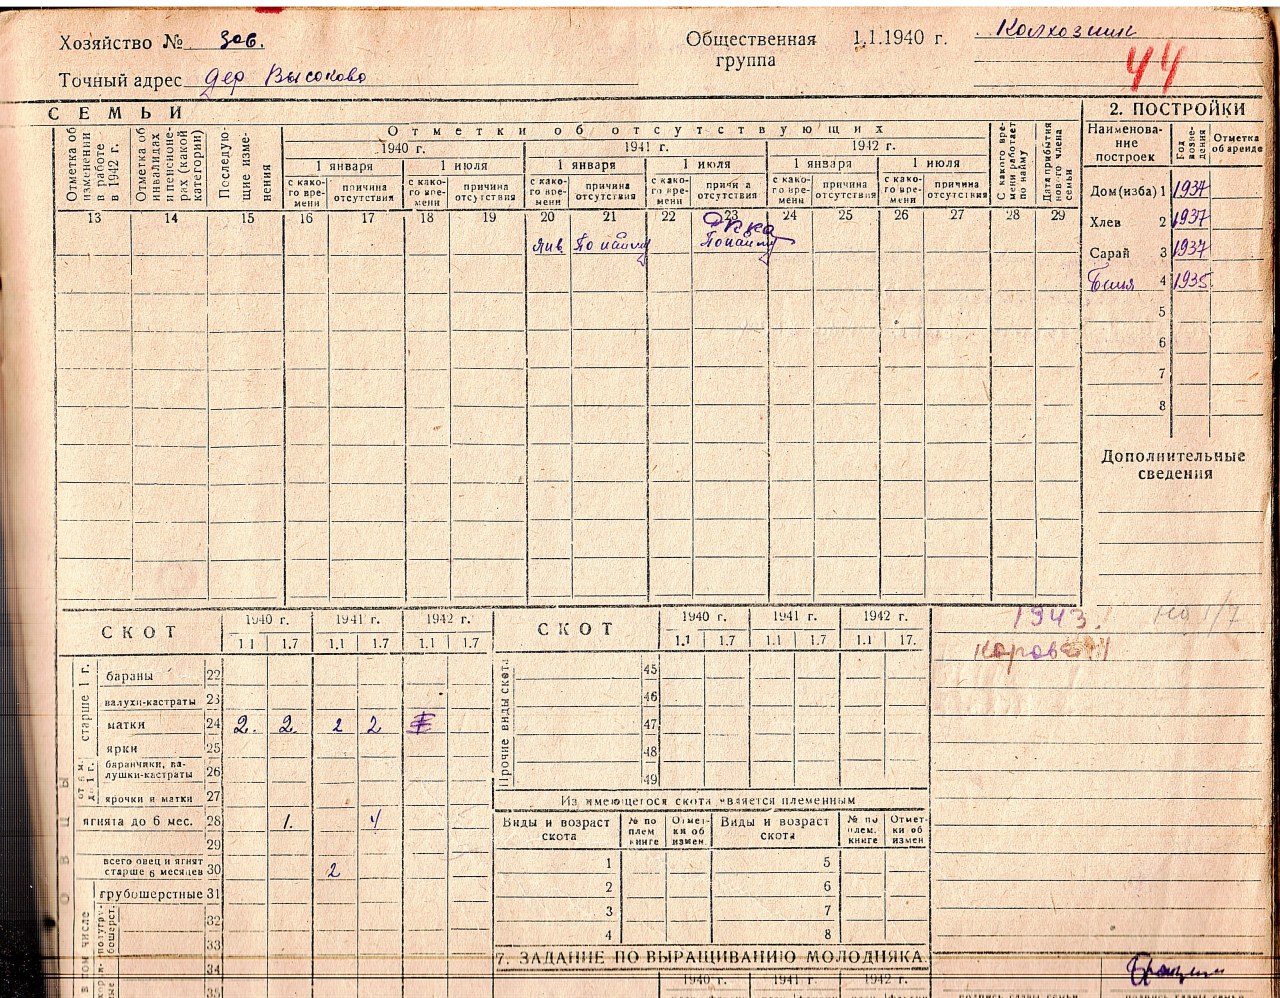 Хозяйство № 306.
Общественная группа 1.1.1940 г. Колхозник
44
Точный адрес дер Высоково
СЕМЬИ
Отметка об изменении в работе в 1942 г.
Отметка об инвалидах и пенсионерах (какой категории)
Последующие изменения
Отметки об отсутствующих
1940 г. 1941 г. 1942 г.
1 января 1 июля 1 января 1 июля 1 января 1 июля
с како-го вре-мени причина отсутствия с како-го вре-мени причина отсутствия с како-го вре-мени причина отсутствия с како-го вре-мени причина отсутствия с како-го вре-мени причина отсутствия с како-го вре-мени причина отсутствия
С какого времени работает по найму
Дата прибытия нового члена семьи
13 14 15 16 17 18 19 20 21 22 23 24 25 26 27 28 29
янв По найму По найму
2. ПОСТРОЙКИ
Наименова-ние построек Год возве-дения Отметка об аренде
Дом (изба) 1 1937
Хлев 2 1937
Сарай 3 1937
Баня 4 1935
5
6
7
8
Дополнительные сведения
1943. на 1/7
СКОТ
1940 г. 1941 г. 1942 г.
1.1 1.7 1.1 1.7 1.1 1.7
старше 1 г.
бараны 22
валухи-кастраты 23
матки 24 2. 2. 2 2
ярки 25
баранчики, ва-лушки-кастраты 26
ярочки и матки 27
ягнята до 6 мес. 28 1. 4
29
всего овец и ягнят старше 6 месяцев 30 2
грубошерстные 31
32
33
34
35
ОВЦЫ
в том числе
СКОТ
1940 г. 1941 г. 1942 г.
1.1 1.7 1.1 1.7 1.1 17.
Прочие виды скота
45
46
47
48
49
Из имеющегося скота является племенным
Виды и возраст скота № по плем книге Отмет-ки об измен. Виды и возраст скота № по плем. книге Отмет-ки об измен
1 5
2 6
3 7
4 8
7. ЗАДАНИЕ ПО ВЫРАЩИВАНИЮ МОЛОДНЯКА.
1940 г. 1941 г. 1942 г.